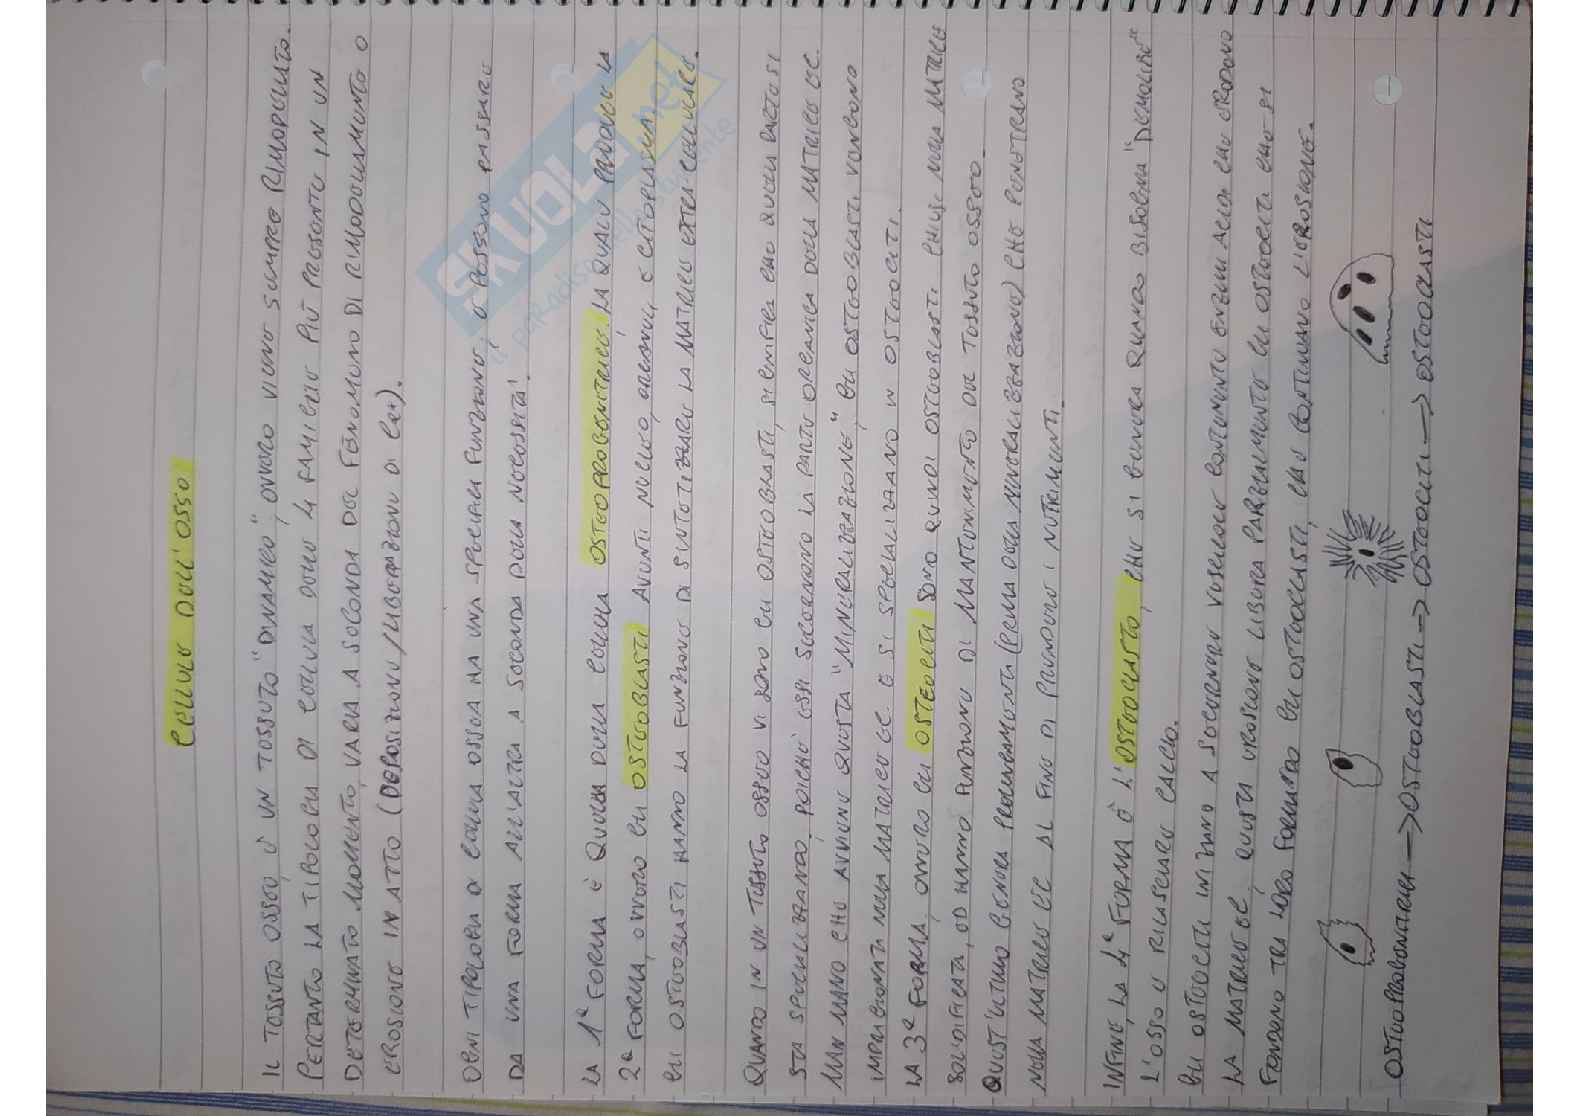 CELLULE DELL'OSSO
IL TESSUTO OSSEO È UN TESSUTO "DINAMICO", OVVERO VIENE SEMPRE RIMODELLATO.
PERTANTO LA TIPOLOGIA DI CELLULA DELLE 4 FAMIGLIE PIÙ PRESENTE IN UN
DETERMINATO MOMENTO, VARIA A SECONDA DEL FENOMENO DI RIMODELLAMENTO O
EROSIONE IN ATTO (DEPOSIZIONE/LIBERAZIONE DI Ca+).
OGNI TIPOLOGIA DI CELLULA OSSEA HA UNA SPECIFICA FUNZIONE, E POSSONO PASSARE
DA UNA FORMA ALL'ALTRA A SECONDA DELLA NECESSITÀ.
LA 1ª FORMA È QUELLA DELLA CELLULA OSTEOPROGENITRICE, LA QUALE PRODUCE LA
2ª FORMA, OVVERO GLI OSTEOBLASTI AVENTI NUCLEO, ORGANULI, E CITOPLASMA.
GLI OSTEOBLASTI HANNO LA FUNZIONE DI SINTETIZZARE LA MATRICE EXTRA CELLULARE.
QUANDO IN UN TESSUTO OSSEO VI SONO GLI OSTEOBLASTI, SIGNIFICA CHE QUELLA PARTE SI
STA SPECIALIZZANDO, POICHÈ ESSI SECERNONO LA PARTE ORGANICA DELLA MATRICE EC.
MAN MANO CHE AVVIENE QUESTA "MINERALIZZAZIONE", GLI OSTEOBLASTI VENGONO
IMPRIGIONATI NELLA MATRICE EC E SI SPECIALIZZANO IN OSTEOCITI.
LA 3ª FORMA, OVVERO GLI OSTEOCITI SONO QUINDI OSTEOBLASTI CHIUSI NELLA MATRICE
SOLIDIFICATA, ED HANNO FUNZIONE DI MANTENIMENTO DEL TESSUTO OSSEO.
QUEST'ULTIMO GENERA PROLUNGAMENTI (PRIMA DELLA MINERALIZZAZIONE) CHE PENETRANO
NELLA MATRICE EC AL FINE DI PRENDERE I NUTRIMENTI.
INFINE, LA 4ª FORMA È L'OSTEOCLASTO, CHE SI GENERA QUANDO BISOGNA "DEMOLIRE"
L'OSSO E RILASCIARE CALCIO.
GLI OSTEOCITI INIZIANO A SECERNERE VESCICOLE CONTENENTI ENZIMI ACIDI CHE ERODONO
LA MATRICE EC, QUESTA EROSIONE LIBERA PARZIALMENTE GLI OSTEOCITI CHE SI
FONDONO TRA LORO FORMANDO GLI OSTEOCLASTI, CHE CONTINUANO L'EROSIONE.
OSTEOPROGENITRICI → OSTEOBLASTI → OSTEOCITI → OSTEOCLASTI
SKUOLA.net
il paradiso dello studente